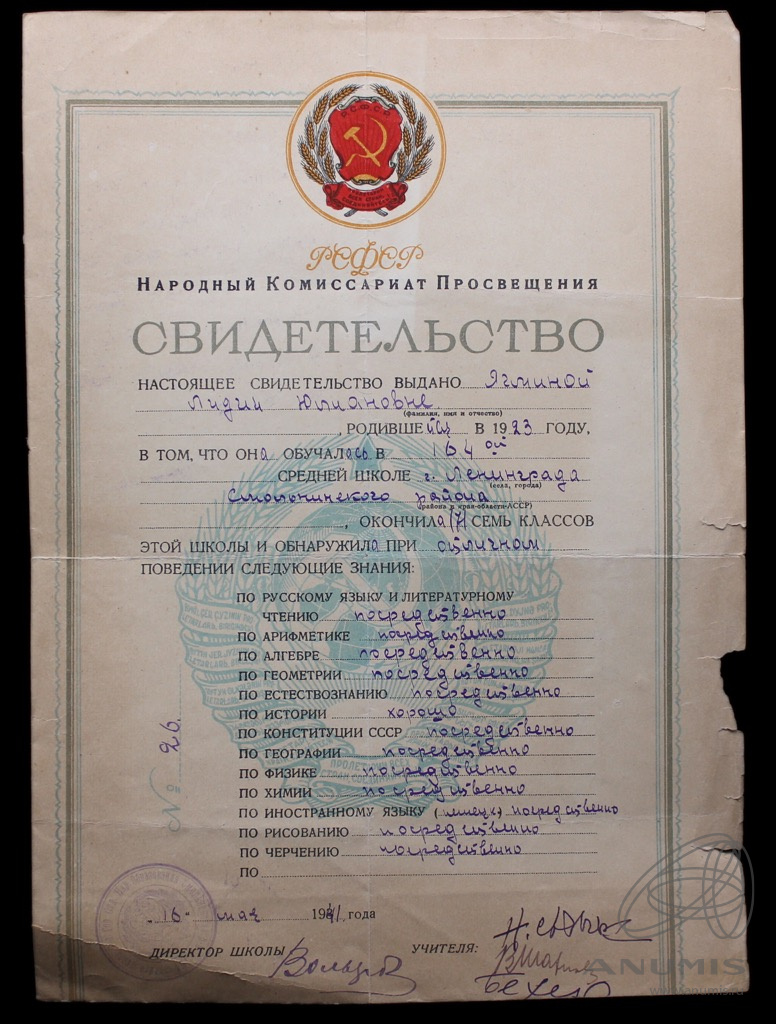 Р.С.Ф.С.Р.
РСФСР
НАРОДНЫЙ КОМИССАРИАТ ПРОСВЕЩЕНИЯ
СВИДЕТЕЛЬСТВО
НАСТОЯЩЕЕ СВИДЕТЕЛЬСТВО ВЫДАНО Ягминой
Лидии Юлиановне
(фамилия, имя и отчество)
, РОДИВШЕЙСЯ В 1923 ГОДУ,
В ТОМ, ЧТО ОНА ОБУЧАЛАСЬ В 164 ой
СРЕДНЕЙ ШКОЛЕ г. Ленинграда
(села, города)
Смольнинского района
(района и края-области-АССР)
, ОКОНЧИЛА (7) СЕМЬ КЛАССОВ
ЭТОЙ ШКОЛЫ И ОБНАРУЖИЛА ПРИ отличном
ПОВЕДЕНИИ СЛЕДУЮЩИЕ ЗНАНИЯ:
ПО РУССКОМУ ЯЗЫКУ И ЛИТЕРАТУРНОМУ
ЧТЕНИЮ посредственно
ПО АРИФМЕТИКЕ посредственно
ПО АЛГЕБРЕ посредственно
ПО ГЕОМЕТРИИ посредственно
ПО ЕСТЕСТВОЗНАНИЮ посредственно
ПО ИСТОРИИ хорошо
ПО КОНСТИТУЦИИ СССР посредственно
ПО ГЕОГРАФИИ посредственно
ПО ФИЗИКЕ посредственно
ПО ХИМИИ посредственно
ПО ИНОСТРАННОМУ ЯЗЫКУ (немецк) посредственно
ПО РИСОВАНИЮ посредственно
ПО ЧЕРЧЕНИЮ посредственно
ПО
№ 26.
16 мая 1941 года
ДИРЕКТОР ШКОЛЫ
УЧИТЕЛЯ:
ANUMIS